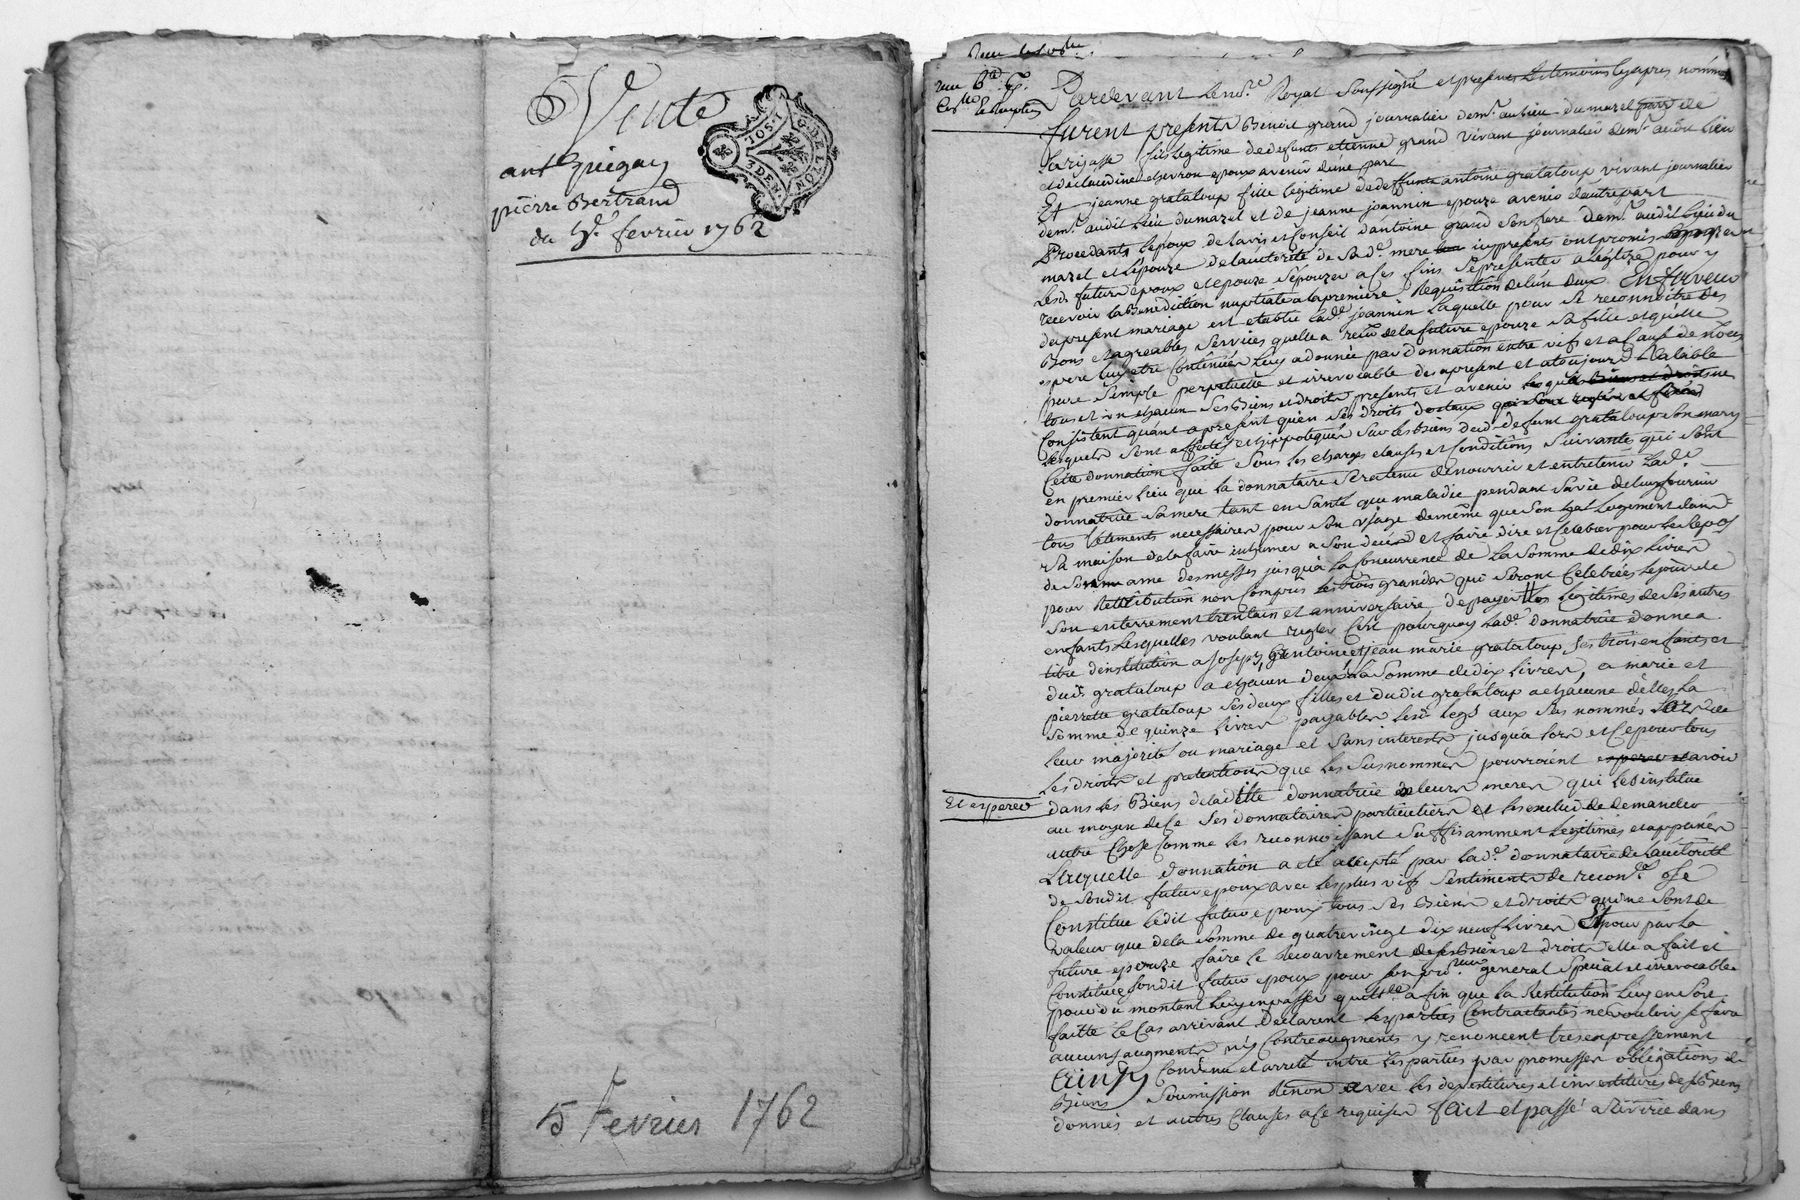 Vente
ant
pierre Bertrand
du 5e. fevrier 1762
1.SOL
3 DEN
G.DE LYON
5 Fevrier 1762
Pardevant Le nore. Royal Soussigné et presents Les temoins cy apres nommés
furent presents Benoit grand journalier demt. au lieu du mazel parr. de
Larajasse fils legitime de defunts etienne grand vivant journalier demt. audit Lieu
et de claudine epoux a venir d'une part
Et jeanne grataloup fille legitime de deffunt antoine grataloup vivant journalier
demt. audit Lieu du mazel et de jeanne joannin epouze a venir d'autre part
Procedants L'epoux de l'avis et Conseil d'antoine grand Son frere demt. audit Lieu du
mazel et L'epouze de l'autorité de Sad. mere icy presents ont promis
Lesd. futurs epoux et epouze S'epouzer a ces fins Se presenter a l'eglize pour y
recevoir la Benediction nuptiale a la premiere Requisition de l'un deux. En faveur
du present mariage est etablie lad. joannin Laquelle pour Se reconnoitre des
Bons et agreables Services quelle a recu de la future epouze Sa fille et quelle
espere luy etre Continués luy a donnée par donnation entre vifs et a Cause de noces
pure Simple perpetuelle et irrevocable des a present et a toujours Valable
tous et un chacun Ses Biens et droits presents et avenir Lesquels Biens et droits ne
Consistent quant a present qu'en Ses droits dotaux
Lesquels Sont affectés et hippotequés Sur les Biens dud. defunt grataloup Son mary
Cette donnation faite Sous les charges clauses et Conditions Suivantes qui Sont
en premier Lieu que la donnataire Sera tenu de nourrir et entretenir Lad.
donnatrice Sa mere tant en Santé que maladie pendant Sa vie de luy fournir
tous vetements necessaires pour Son usage de même que Son Logement dans
Sa maison de la faire inhumer a Son decés et faire dire et Celebrer pour Le Repos
de Son ame des messes jusqu'à la Concurrence de La Somme de dix Livres
pour Retribution non Compris les trois grandes qui Seront Celebrées Le jour de
Son enterrement trentain et anniversaire, de payer Les legitimes de Ses autres
enfants Lesquelles voulant regler C'est pourquoy Lad. donnatrice donne a
titre d'institution a joseph, antoine et jean marie grataloup, Ses trois enfants et
dud. grataloup a chacun deux La Somme de dix Livres, a marie et
pierrette grataloup Ses deux filles et dudit grataloup a chacune d'elles La
Somme de quinze Livres payables Lesd. legs aux Susnommés Lors de
leur majorité ou mariage et Sans interests jusqu'a Lors et Ce pour tous
Les droits et pretentions que les Susnommés pourroient esperer et avoir
Et esperer
dans les Biens de ladite donnatrice leurs meres qui les institue
au moyen de Ce Ses donnataires particuliers et les exclud de demander
autre Chose Comme les reconnoissant Suffisamment Legitimés et appanés
Laquelle donnation a eté accepté par Lad. donnataire de l'autorité
de Sondit futur epoux avec les plus vifs Sentiments de
Constitue ledit futur epoux tous Ses Biens et droits qui ne Sont de
valeur que de la Somme de quatre vingt dix neuf Livres Et pour par La
future epouze faire le Recouvrement de Ses Biens et droits elle a fait et
Constitue Sondit futur epoux pour Son general Special et irrevocable
pour du montant Luy en passer quittce. a fin que la Restitution Luy en Soit
faitte le Cas arrivant Declarent Les parties Contractantes ne vouloir Se faire
aucuns augments ny Contre augments y renoncent tres expressement
Ainsy Convenu et arreté entre Les parties par promesses obligations de
Biens Soumission Renon. avec les devestitures et investitures des Biens
donnés et autres Clauses a Ce requises fait et passé a Riverie dans